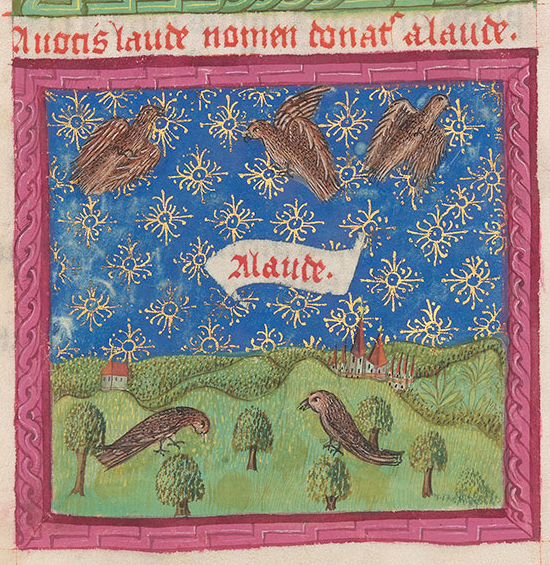 A uocis laude nomen donat' alaude.
Alaude.